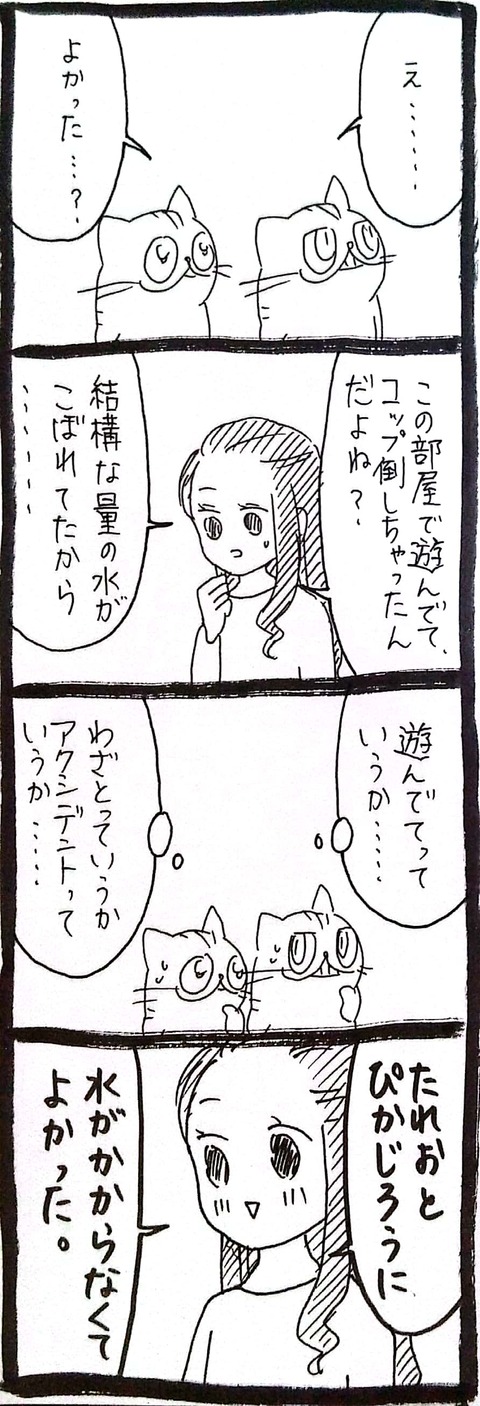 え……
よかった…？
この部屋で遊んでて、
コップ倒しちゃったん
だよね？
結構な量の水が
こぼれてたから
………
遊んでてって
いうか……
わざとっていうか
アクシデントって
いうか……
たれおと
ぴかじろうに
水がかからなくて
よかった。